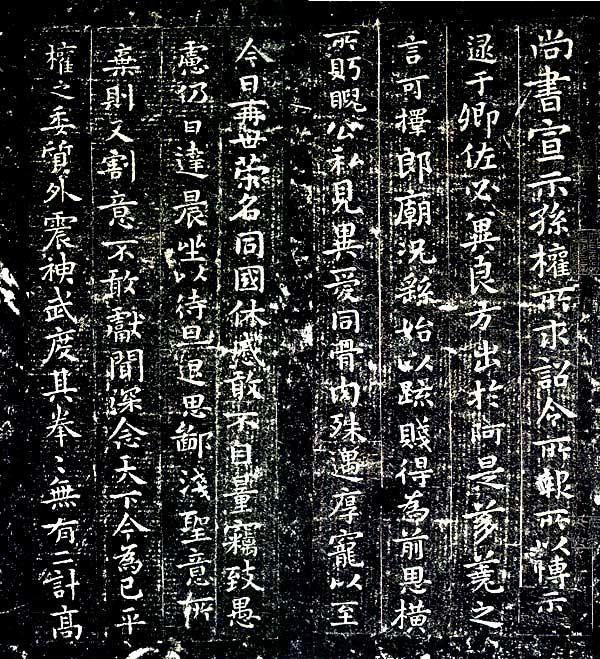 尚書宣示孫權所求詔令所報所以博示
逮于卿佐必冀良方出於阿是芻蕘之
言可擇郎廟況繇始以疏賤得為前恩橫
所䀪睨公私見異愛同骨肉殊遇厚寵以至
今日再世榮名同國休慼敢不自量竊致愚
慮仍日達晨坐以待旦退思鄙淺聖意所
棄則又割意不敢獻聞深念天下今為已平
權之委質外震神武度其拳〻無有二計高